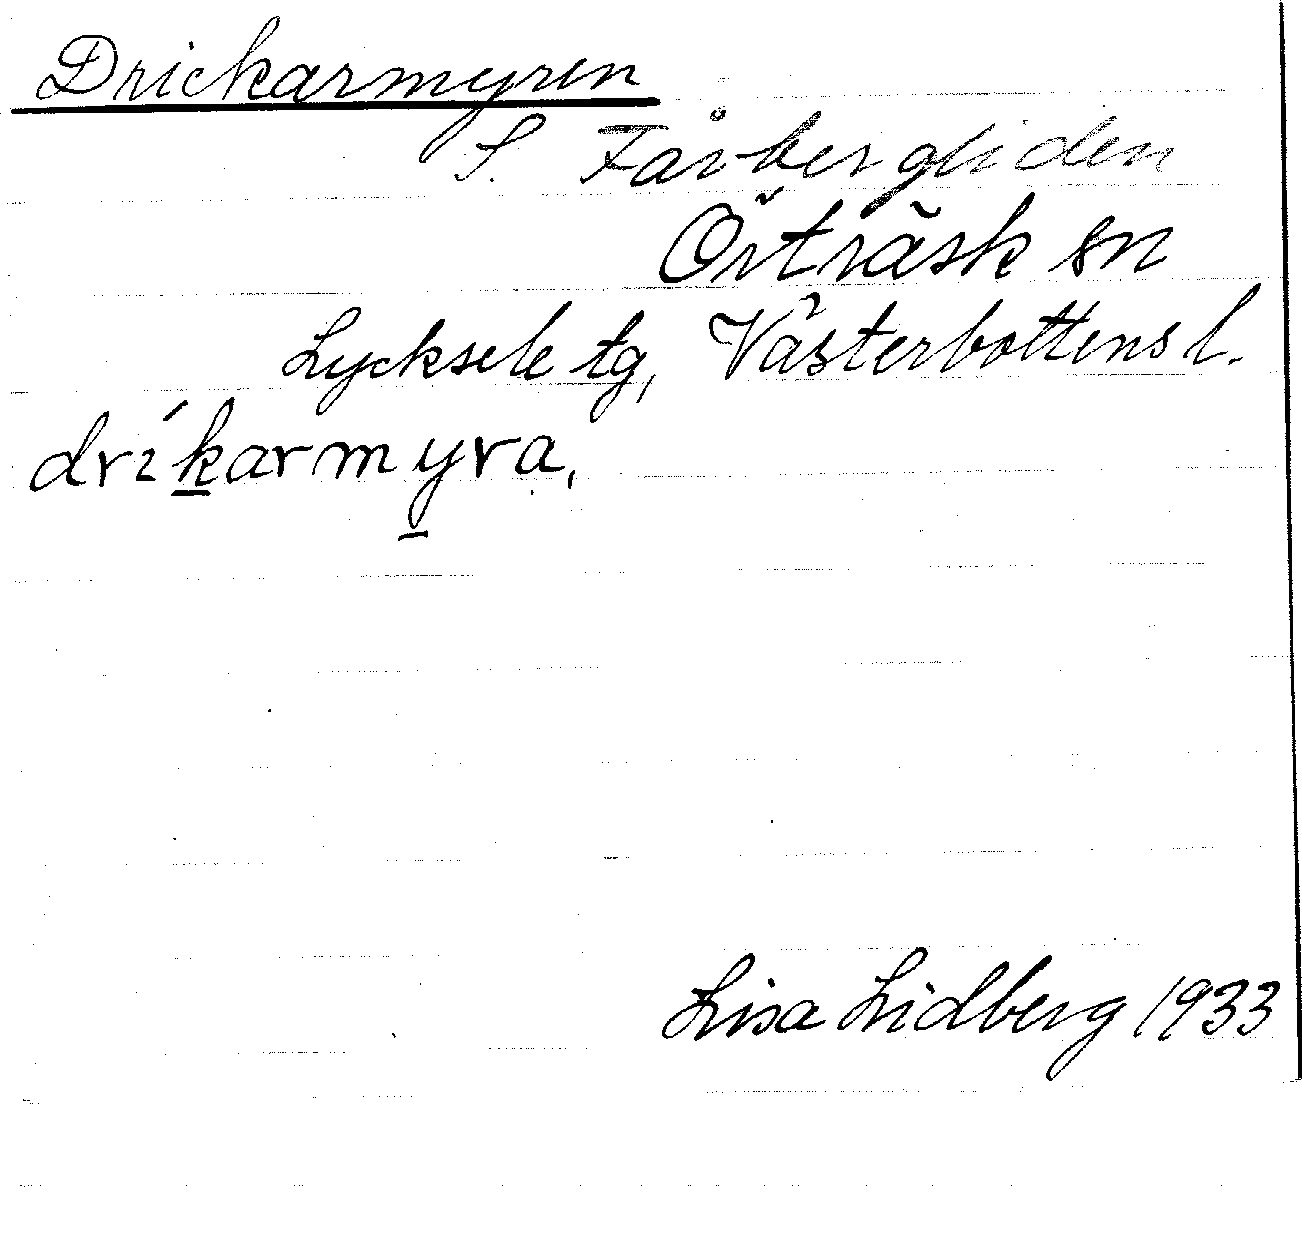 Drickarmyren
S. Fårbergliden
Örträsk sn
Lycksele tg, Västerbottens l.
drikarmyra,
Lisa Lidberg 1933